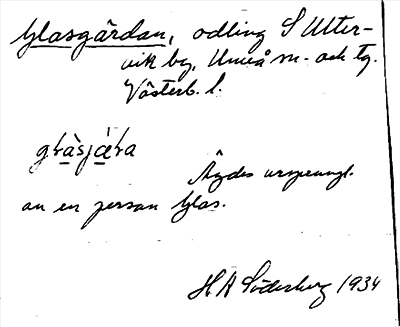 Glasgärdan, odling S Ytter-
vik by, Umeå sn. och tg.
Västerb. l.
Ägdes ursprungl.
av en person Glas.
H A Söderberg 1934